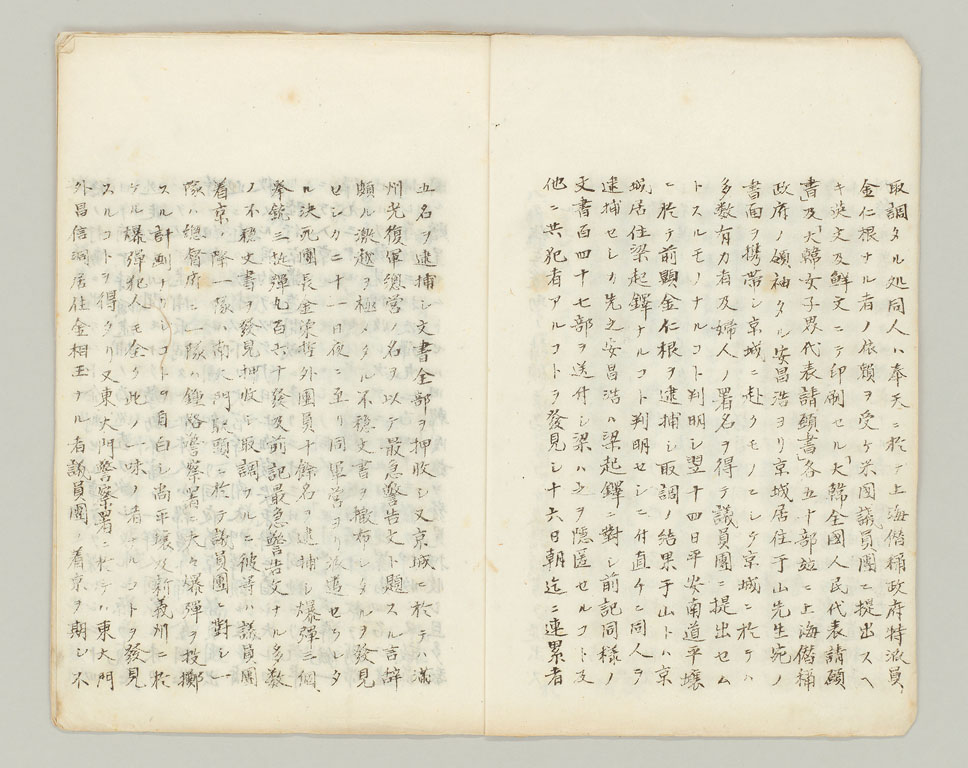 取調タル処同人ハ奉天ニ於テ上海僭稱政府特派員
金仁根ナル者ノ依賴ヲ受ケ米国議員團ニ提出スヘ
キ英文及鮮文ニテ印刷セル「大韓全國人民代表請願
書」及「大韓女子界代表請願書」各五十部竝ニ上海僭稱
政府ノ領袖タル安昌浩ヨリ京城居住于山先生宛ノ
書面ヲ携帯シ京城ニ赴クモノニシテ京城ニ於テハ
多数有力者及婦人ノ署名ヲ得テ議員團ニ提出セム
トスルモノナルコト判明シ翌十四日平安南道平壤
ニ於テ前顕金仁根ヲ逮捕シ取調ノ結果于山トハ京
城居住梁起鐸ナルコト判明セシニ付直ケニ同人ヲ
逮捕セシメ先之安昌浩ハ梁起鐸ニ對シ前記同様ノ
文書百四十七部ヲ送付シ梁ハ之ヲ隠匿セルコト及
他ニ共犯者アルコトヲ發見シ十六日朝迄ニ連累者
五名ヲ逮捕シ文書全部ヲ押收シ又京城ニ於テハ滿
州光復軍總營ノ名ヲ以テ最急警告文ト題スル言辞
頗ル激越ヲ極メタル不穏文書ヲ撒布シタルヲ發見
セシカ二十一日夜ニ至リ同軍營ヨリ派遣セラレタ
ル決死團長金榮哲外團員十餘名ヲ逮捕シ爆彈三個、
拳銃三挺彈丸百六十發及前記最急警告文ナル多数
ノ不穏文書ヲ發見押收シ取調フルニ彼等ハ議員團
着京ノ際一隊ハ南大門驛頭ニ於テ議員團ニ對シ一
隊ハ總督府ニ一隊ハ鍾路警察署ニ夫々爆彈ヲ投擲
スル計画ヲナセシコトヲ自白シ尚平壤及新義州ニ於
ケル爆彈犯人モ全ク此ノ一味ノ者ナルコトヲ發見
スルコトヲ得タリ又東大門警察署ニ於テハ東大門
外昌信洞居住金相玉ナル者議員團ノ着京ヲ期シ不